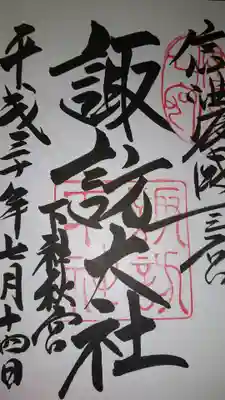 信濃國一之宮
諏訪大社
下社秋宮
平成三十年七月十四日
諏訪大社